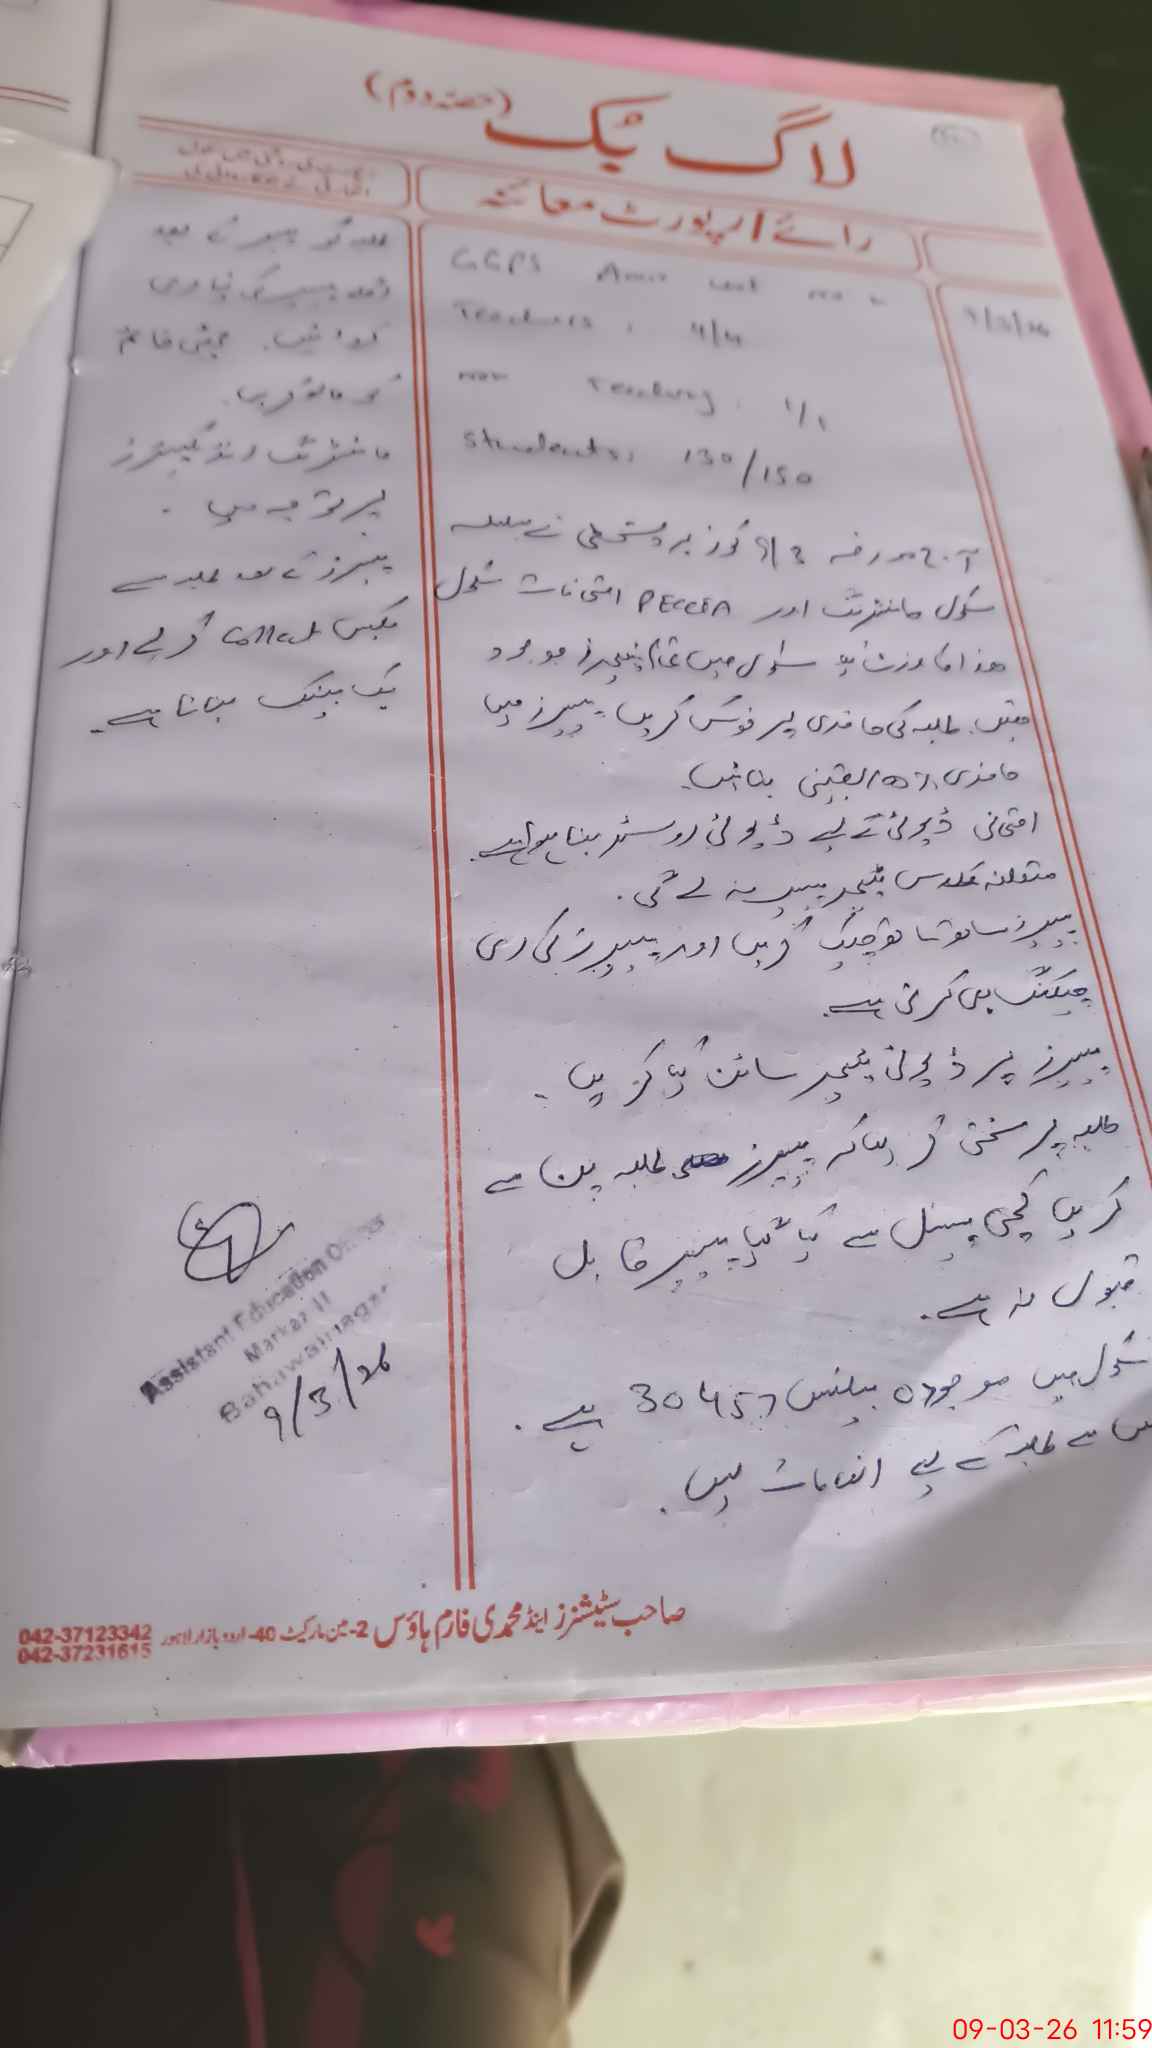 لاگ بُک (حصہ دوم)
رائے / رپورٹ معائنہ
9/3/26
GGPS Amir
Teachers: 4/4
non Teaching: 1/1
Students: 130/150
آج مورخہ 9/3 کو زیر دستخطی نے بسلسلہ
سکول مانیٹرنگ اور PECCEA امتحانات سکول
ھذا کا وزٹ کیا۔ سکول میں تمام ٹیچرز موجود
تھیں۔ طلبہ کی حاضری پر فوکس کریں۔ پیپرز میں
حاضری یقینی بنائیں۔
امتحانی ڈیوٹی کے لیے ڈیوٹی روسٹر بنا ہوا ہے۔
متعلقہ کلاس ٹیچر پیپر نہ لے گی۔
پیپرز ساتھ ساتھ چیک کریں اور پیپرز کی ری
چیکنگ بھی کرنی ہے۔
پیپرز پر ڈیوٹی ٹیچر سائن کریں۔
طلبہ پر سختی کریں کہ پیپرز طلبہ پن سے
کریں کچی پینسل سے کیا گیا پیپر قابل
قبول نہ ہے۔
سکول میں موجودہ بیلنس 30457 ہے۔
سے طلبہ کے لیے انعامات لیں۔
طلبہ کو پیپر کے بعد
اگلے پیپر کی تیاری
کروائیں۔
مانیٹرنگ انڈیکیٹرز
پر توجہ دیں۔
پیپرز کے بعد طلبہ سے
بکس collect کرلے اور
بک بینک بنانا ہے۔
Assistant Education Officer
Markaz II
Bahawalnagar
9/3/26
صاحب سٹیشنرز اینڈ محمدی فارم ہاؤس 2-مین مارکیٹ 40-اردو بازار لاہور
042-37123342
042-37231615
09-03-26 11:59